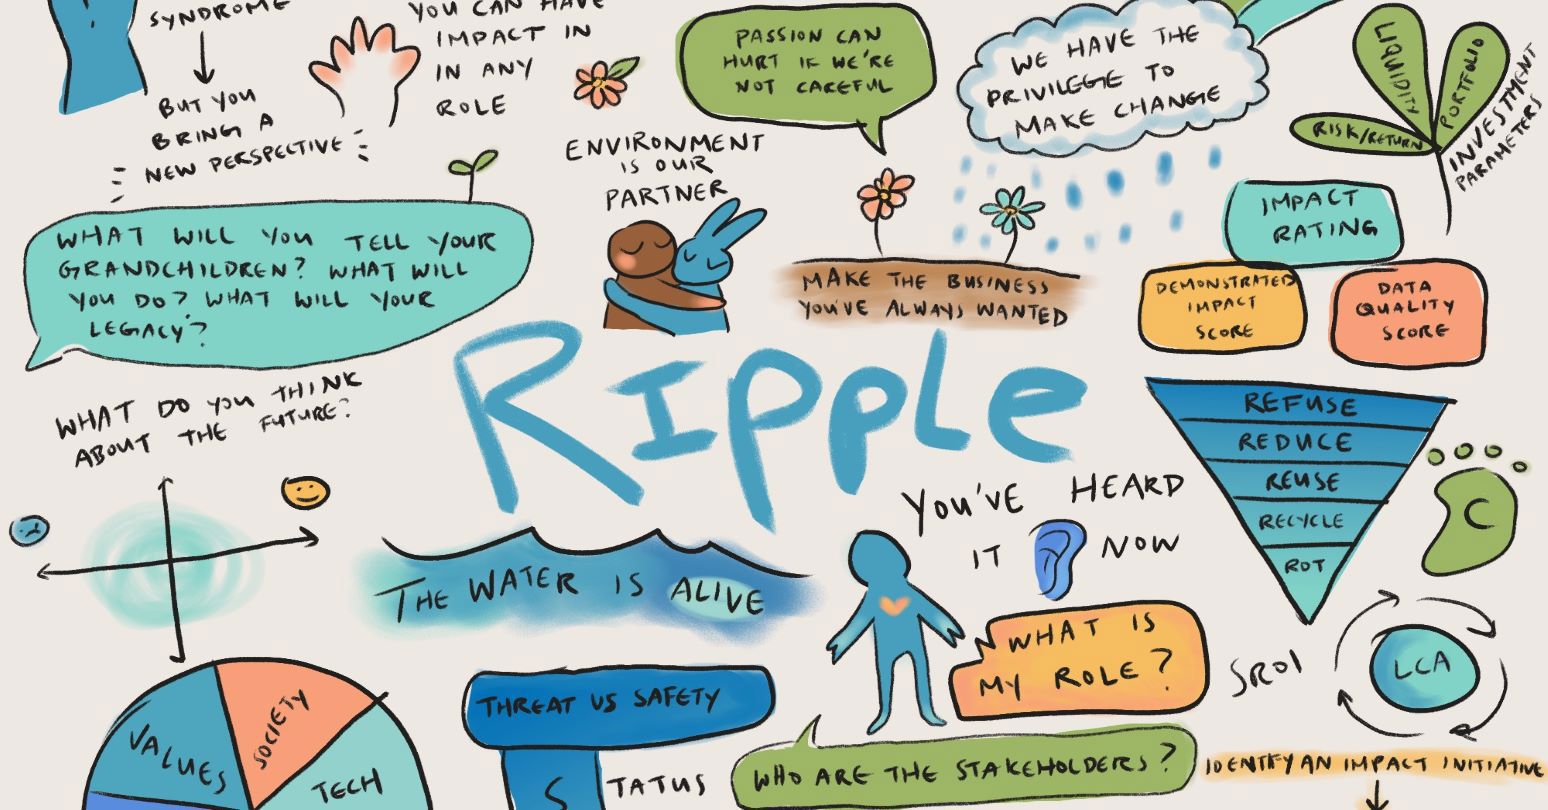 SYNDROME
BUT YOU
BRING A
NEW PERSPECTIVE
YOU CAN HAVE
IMPACT IN
IN ANY
ROLE
PASSION CAN
HURT IF WE'RE
NOT CAREFUL
WE HAVE THE
PRIVILEGE TO
MAKE CHANGE
LIQUIDITY
PORTFOLIO
RISK/RETURN
INVESTMENT
PARAMETERS
ENVIRONMENT
IS OUR
PARTNER
WHAT WILL YOU TELL YOUR
GRANDCHILDREN? WHAT WILL
YOU DO? WHAT WILL YOUR
LEGACY?
MAKE THE BUSINESS
YOU'VE ALWAYS WANTED
IMPACT
RATING
DEMONSTRATED
IMPACT
SCORE
DATA
QUALITY
SCORE
RIPPLE
WHAT DO YOU THINK
ABOUT THE FUTURE?
REFUSE
REDUCE
REUSE
RECYCLE
ROT
C
YOU'VE HEARD
IT NOW
THE WATER IS ALIVE
WHAT IS
MY ROLE?
SROI
LCA
VALUES
SOCIETY
TECH
THREAT VS SAFETY
STATUS
WHO ARE THE STAKEHOLDERS?
IDENTIFY AN IMPACT INITIATIVE